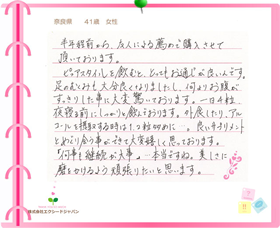 奈良県 41歳 女性
半年程前から、友人による薦めで購入させて
頂いております。
ビックスタイルを飲むと、とってもお通じが良いんです。
足のむくみも大分良くなりましたし、何よりお腹が
すっきりした事に大変驚いております。一日4粒、
夜寝る前にしっかりと飲んでおります。外食したり、アル
コールを摂取する時は1、2粒切めに…。良いサプリメント
とめぐり会う事ができて大変嬉しく思っております。
「何事も継続が大事」…本当ですね。美しさに
磨きをかけるよう頑張りたいと思います。
株式会社エクシードジャパン